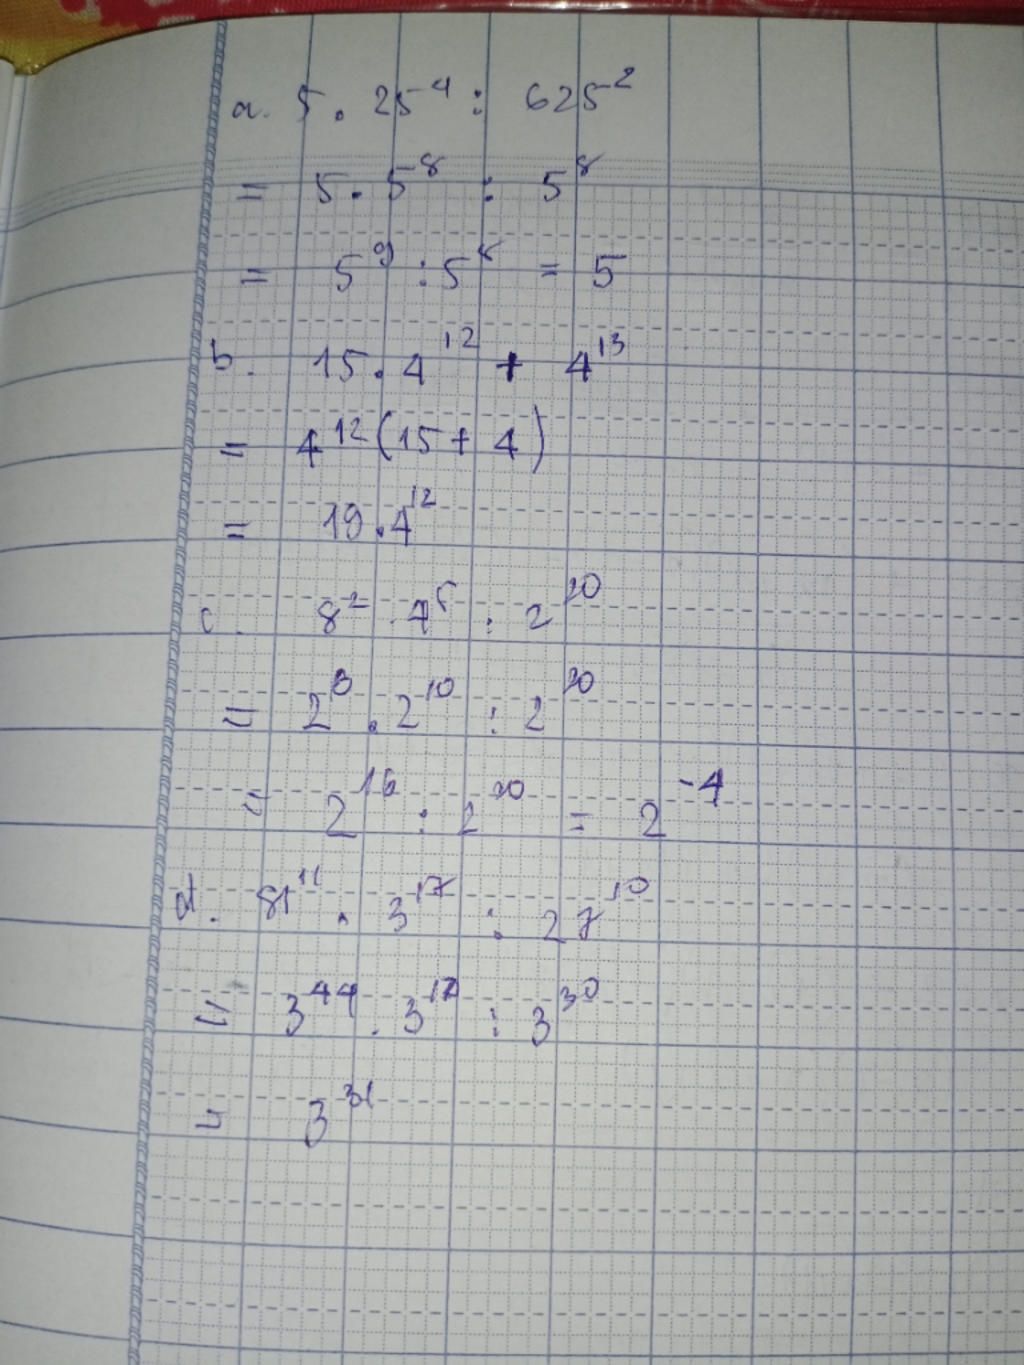 a. 5 . 25⁴ : 625²
= 5 . 5⁸ : 5⁸
= 5⁹ : 5⁸ = 5
b. 15 . 4¹² + 4¹³
= 4¹² (15 + 4)
= 19 . 4¹²
c. 8² . 4⁵ : 2²⁰
= 2⁶ . 2¹⁰ : 2²⁰
= 2¹⁶ : 2²⁰ = 2⁻⁴
d. 81¹¹ . 3¹⁷ : 27¹⁰
= 3⁴⁴ . 3¹⁷ : 3³⁰
= 3³¹